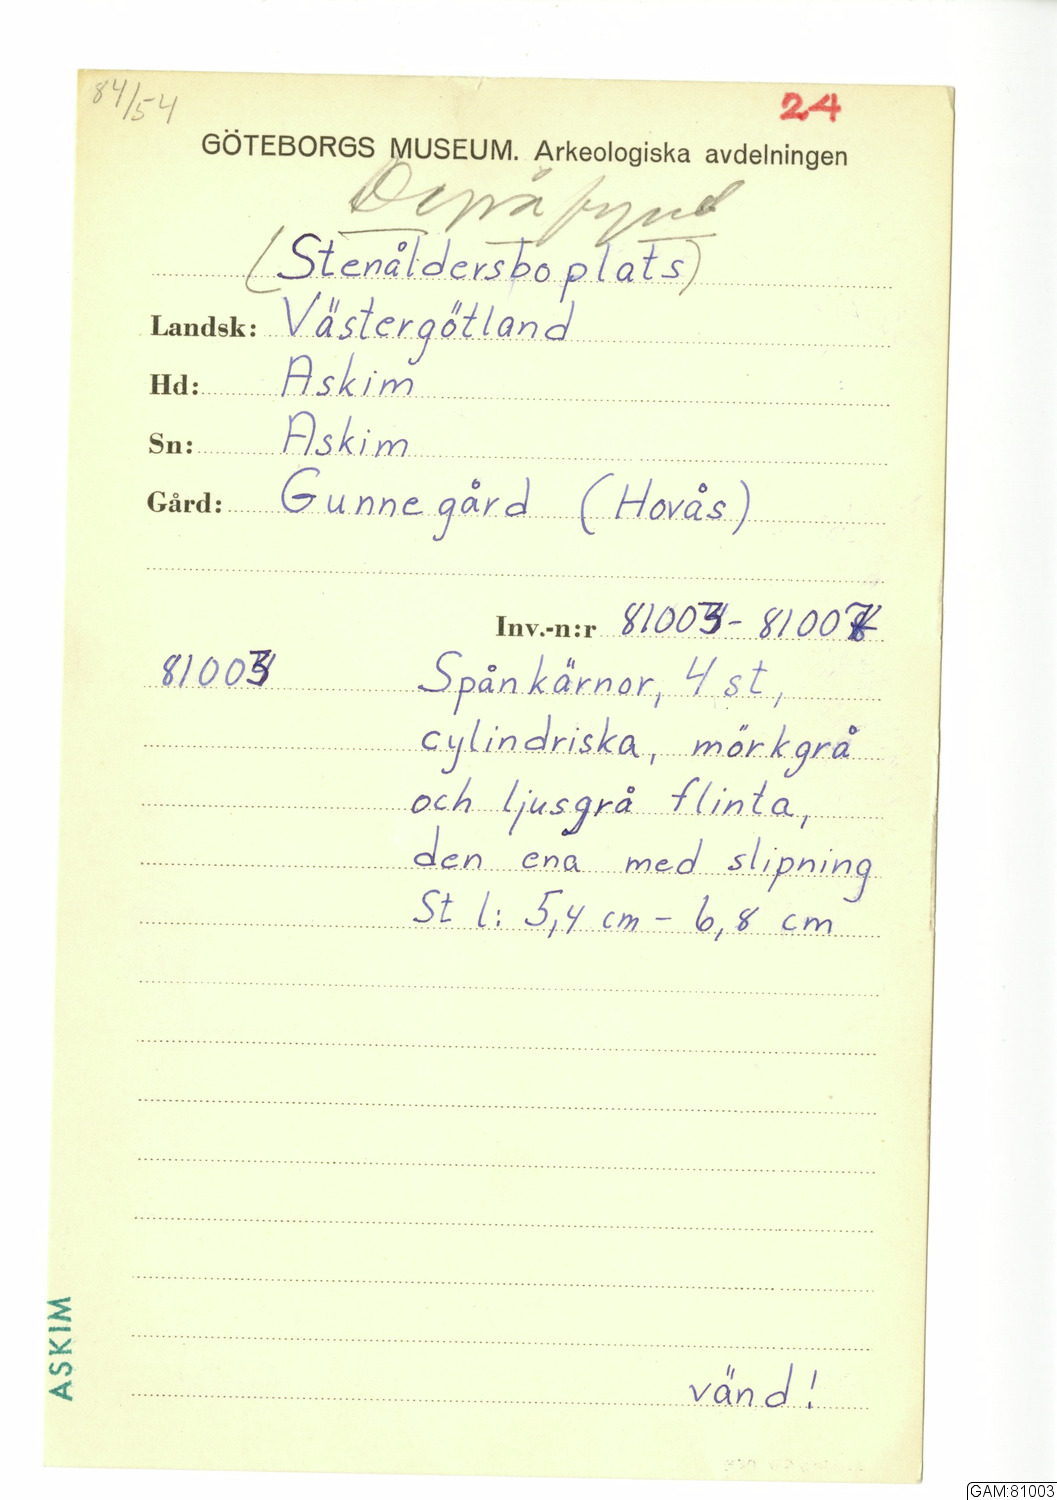 84/54
24
GÖTEBORGS MUSEUM. Arkeologiska avdelningen
Depåfynd
(Stenåldersboplats)
Landsk: Västergötland
Hd: Askim
Sn: Askim
Gård: Gunnegård (Hovås)
Inv.-n:r 81003 - 81007
81003 Spånkärnor, 4 st,
cylindriska, mörkgrå
och ljusgrå flinta,
den ena med slipning
St l: 5,4 cm - 6,8 cm
vänd!
ASKIM
GAM:81003